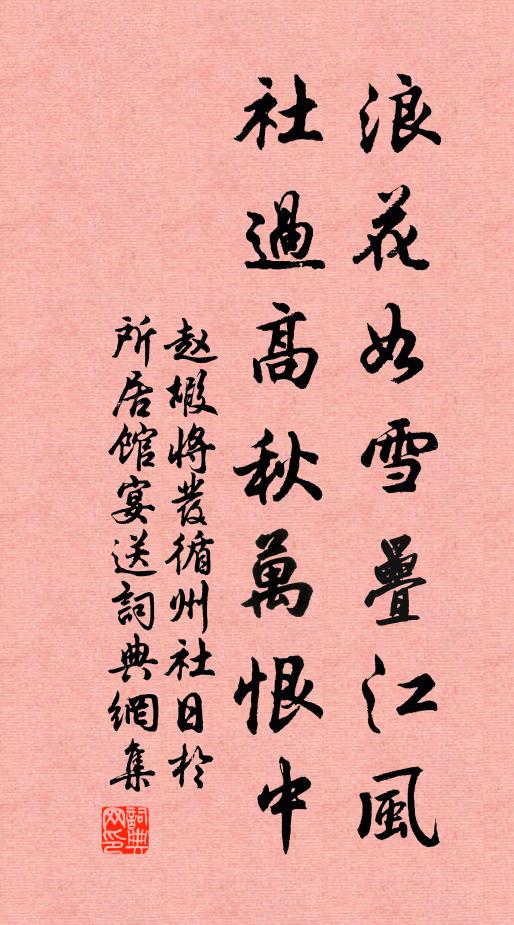 浪花如雪疊江風
社過高秋萬恨中
赵嘏將發循州社日於
所居館宴送詞典網集
詞典网印